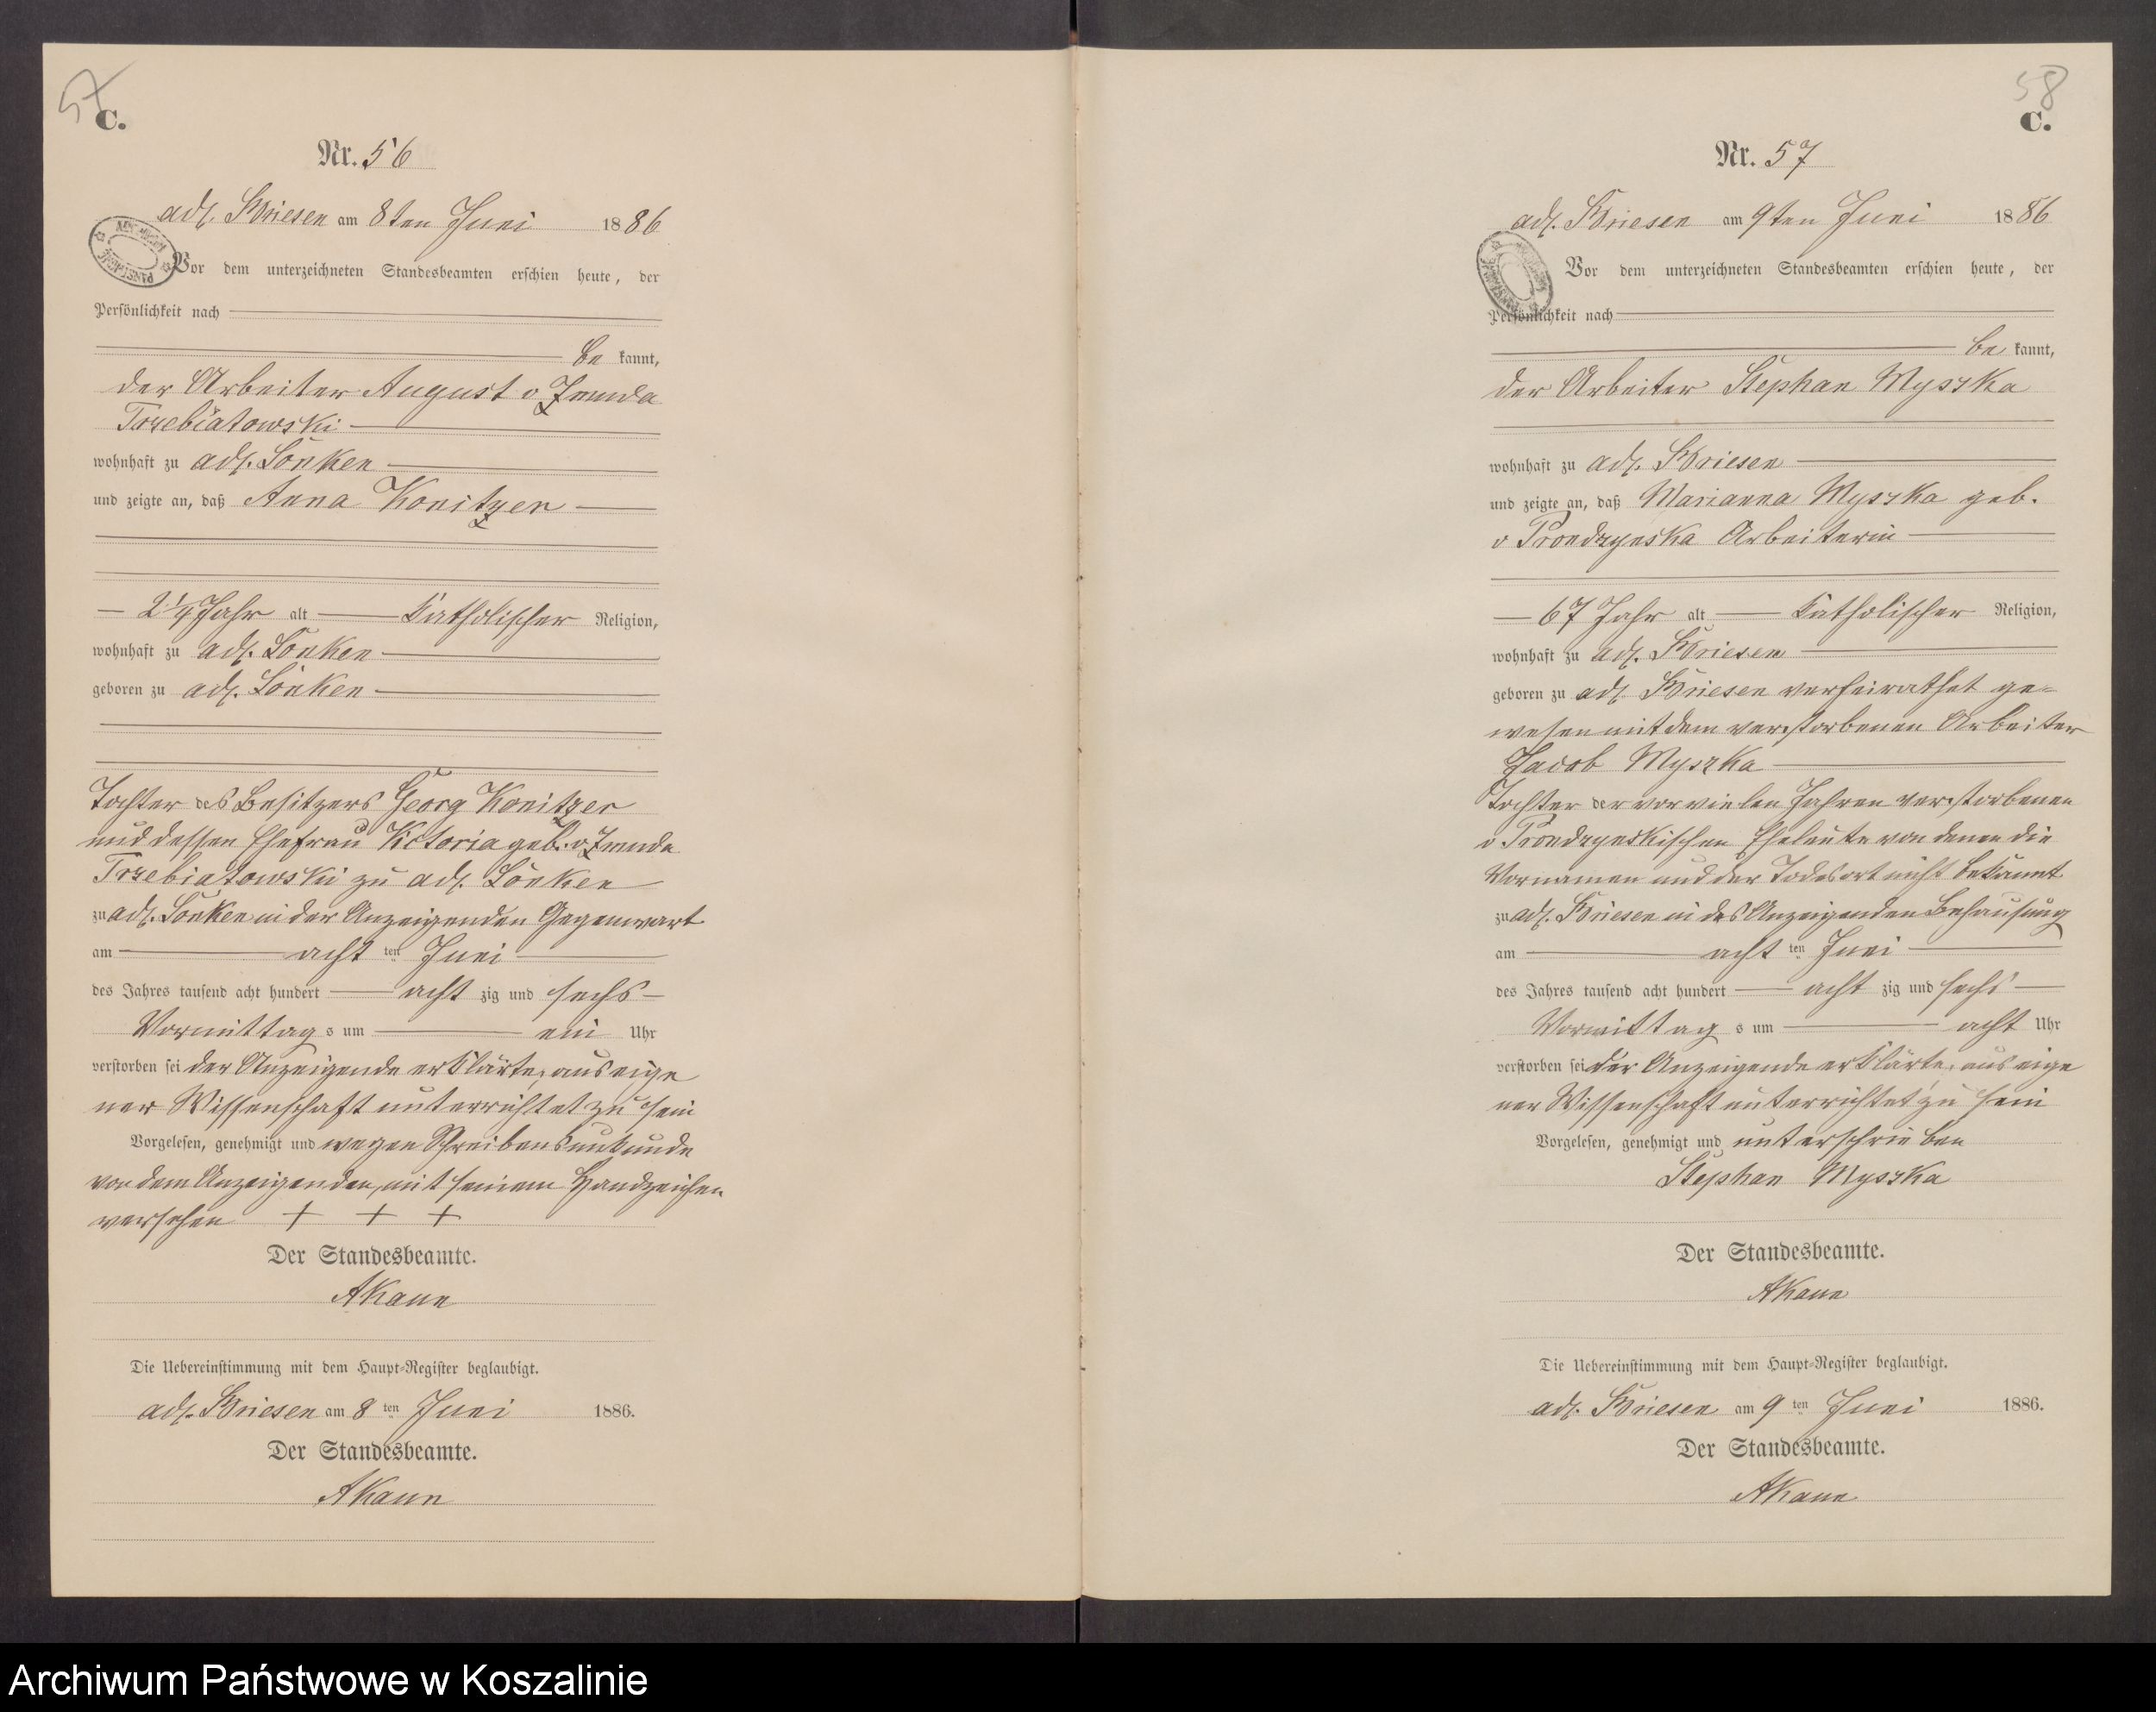 57
C.
Nr. 56
adl. Briesen am 8ten Juni 1886
Vor dem unterzeichneten Standesbeamten erschien heute, der
Persönlichkeit nach
be kannt,
der Arbeiter August v Zmuda
Trzebiatowski
wohnhaft zu adl. Lonken
und zeigte an, daß Anna Konitzer
2 1/4 Jahr alt Katholischer Religion,
wohnhaft zu adl. Lonken
geboren zu adl. Lonken
Tochter des Besitzers Georg Konitzer
und dessen Ehefrau Victoria geb. v Zmuda
Trzebiatowski zu adl. Lonken
zu adl. Lonken in der Anzeigenden Gegenwart
am acht ten Juni
des Jahres tausend acht hundert acht zig und sechs
Vormittag s um ein Uhr
verstorben sei der Anzeigende erklärte, aus eige
ner Wissenschaft unterrichtet zu sein
Vorgelesen, genehmigt und wegen Schreibensunkunde
von dem Anzeigenden, mit seinem Handzeichen
versehen + + +
Der Standesbeamte.
AKaun
Die Uebereinstimmung mit dem Haupt-Register beglaubigt.
adl. Briesen am 8 ten Juni 1886.
Der Standesbeamte.
AKaun
58
C.
Nr. 57
adl. Briesen am 9ten Juni 1886
Vor dem unterzeichneten Standesbeamten erschien heute, der
Persönlichkeit nach
be kannt,
der Arbeiter Stephan Myszka
wohnhaft zu adl. Briesen
und zeigte an, daß Marianna Myszka geb.
v Prondzynska Arbeiterin
67 Jahr alt Katholischer Religion,
wohnhaft zu adl. Briesen
geboren zu adl. Briesen verheirathet ge-
wesen mit dem verstorbenen Arbeiter
Jacob Myszka
Tochter der vor vielen Jahren verstorbenen
v Prondzynskischen Eheleute von denen die
Vornamen und der Todesort nicht bekannt
zu adl. Briesen in des Anzeigenden Behausung
am acht ten Juni
des Jahres tausend acht hundert acht zig und sechs
Vormittag s um acht Uhr
verstorben sei der Anzeigende erklärte, aus eige
ner Wissenschaft unterrichtet zu sein
Vorgelesen, genehmigt und unterschrieben
Stephan Myszka
Der Standesbeamte.
AKaun
Die Uebereinstimmung mit dem Haupt-Register beglaubigt.
adl. Briesen am 9 ten Juni 1886.
Der Standesbeamte.
AKaun
Archiwum Państwowe w Koszalinie